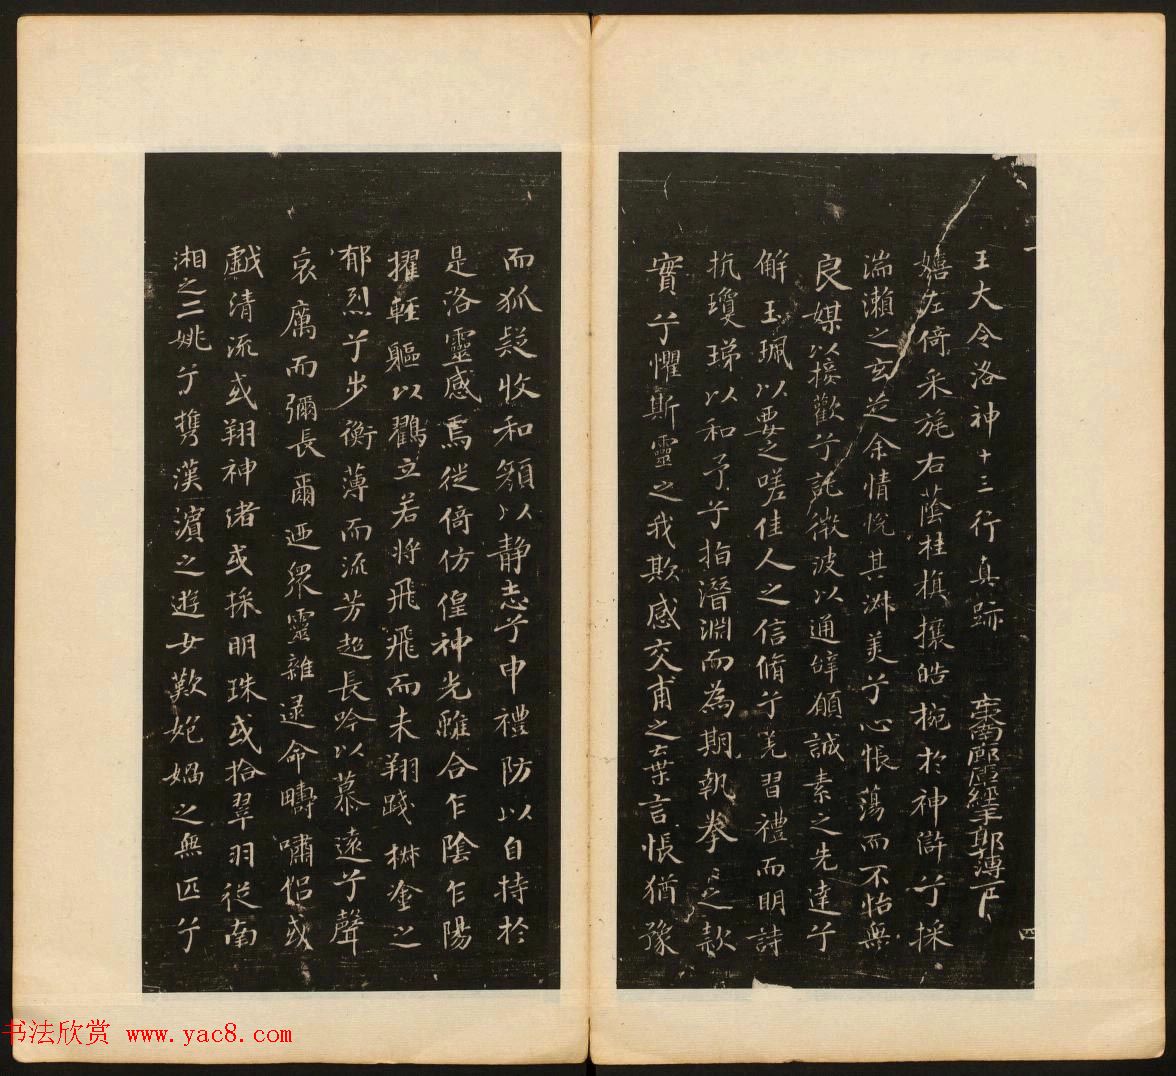 王大令洛神十三行真跡
嬉左倚采旄右蔭桂旗攘皓捥於神滸兮採
湍瀨之玄芝余情悅其淑美兮心悵蕩而不怡無
良媒以接歡兮託微波以通辭願誠素之先達兮
解玉珮以要之嗟佳人之信脩兮羌習禮而明詩
抗瓊珶以和予兮指潛淵而為期執拳〻之款
實兮懼斯靈之我欺感交甫之棄言悵猶豫
而狐疑收和顏以静志兮申禮防以自持於
是洛靈感焉徙倚仿偟神光離合乍陰乍陽
擢輕軀以鸖立若將飛飛而未翔踐椒塗之
郁烈兮步衡薄而流芳超長吟以慕遠兮聲
哀厲而彌長爾迺眾靈雜遝命疇嘯侶或
戲清流或翔神渚或採明珠或拾翠羽從南
湘之二姚兮攜漢濱之遊女歎匏媧之無匹兮
四
书法欣赏 www.yac8.com